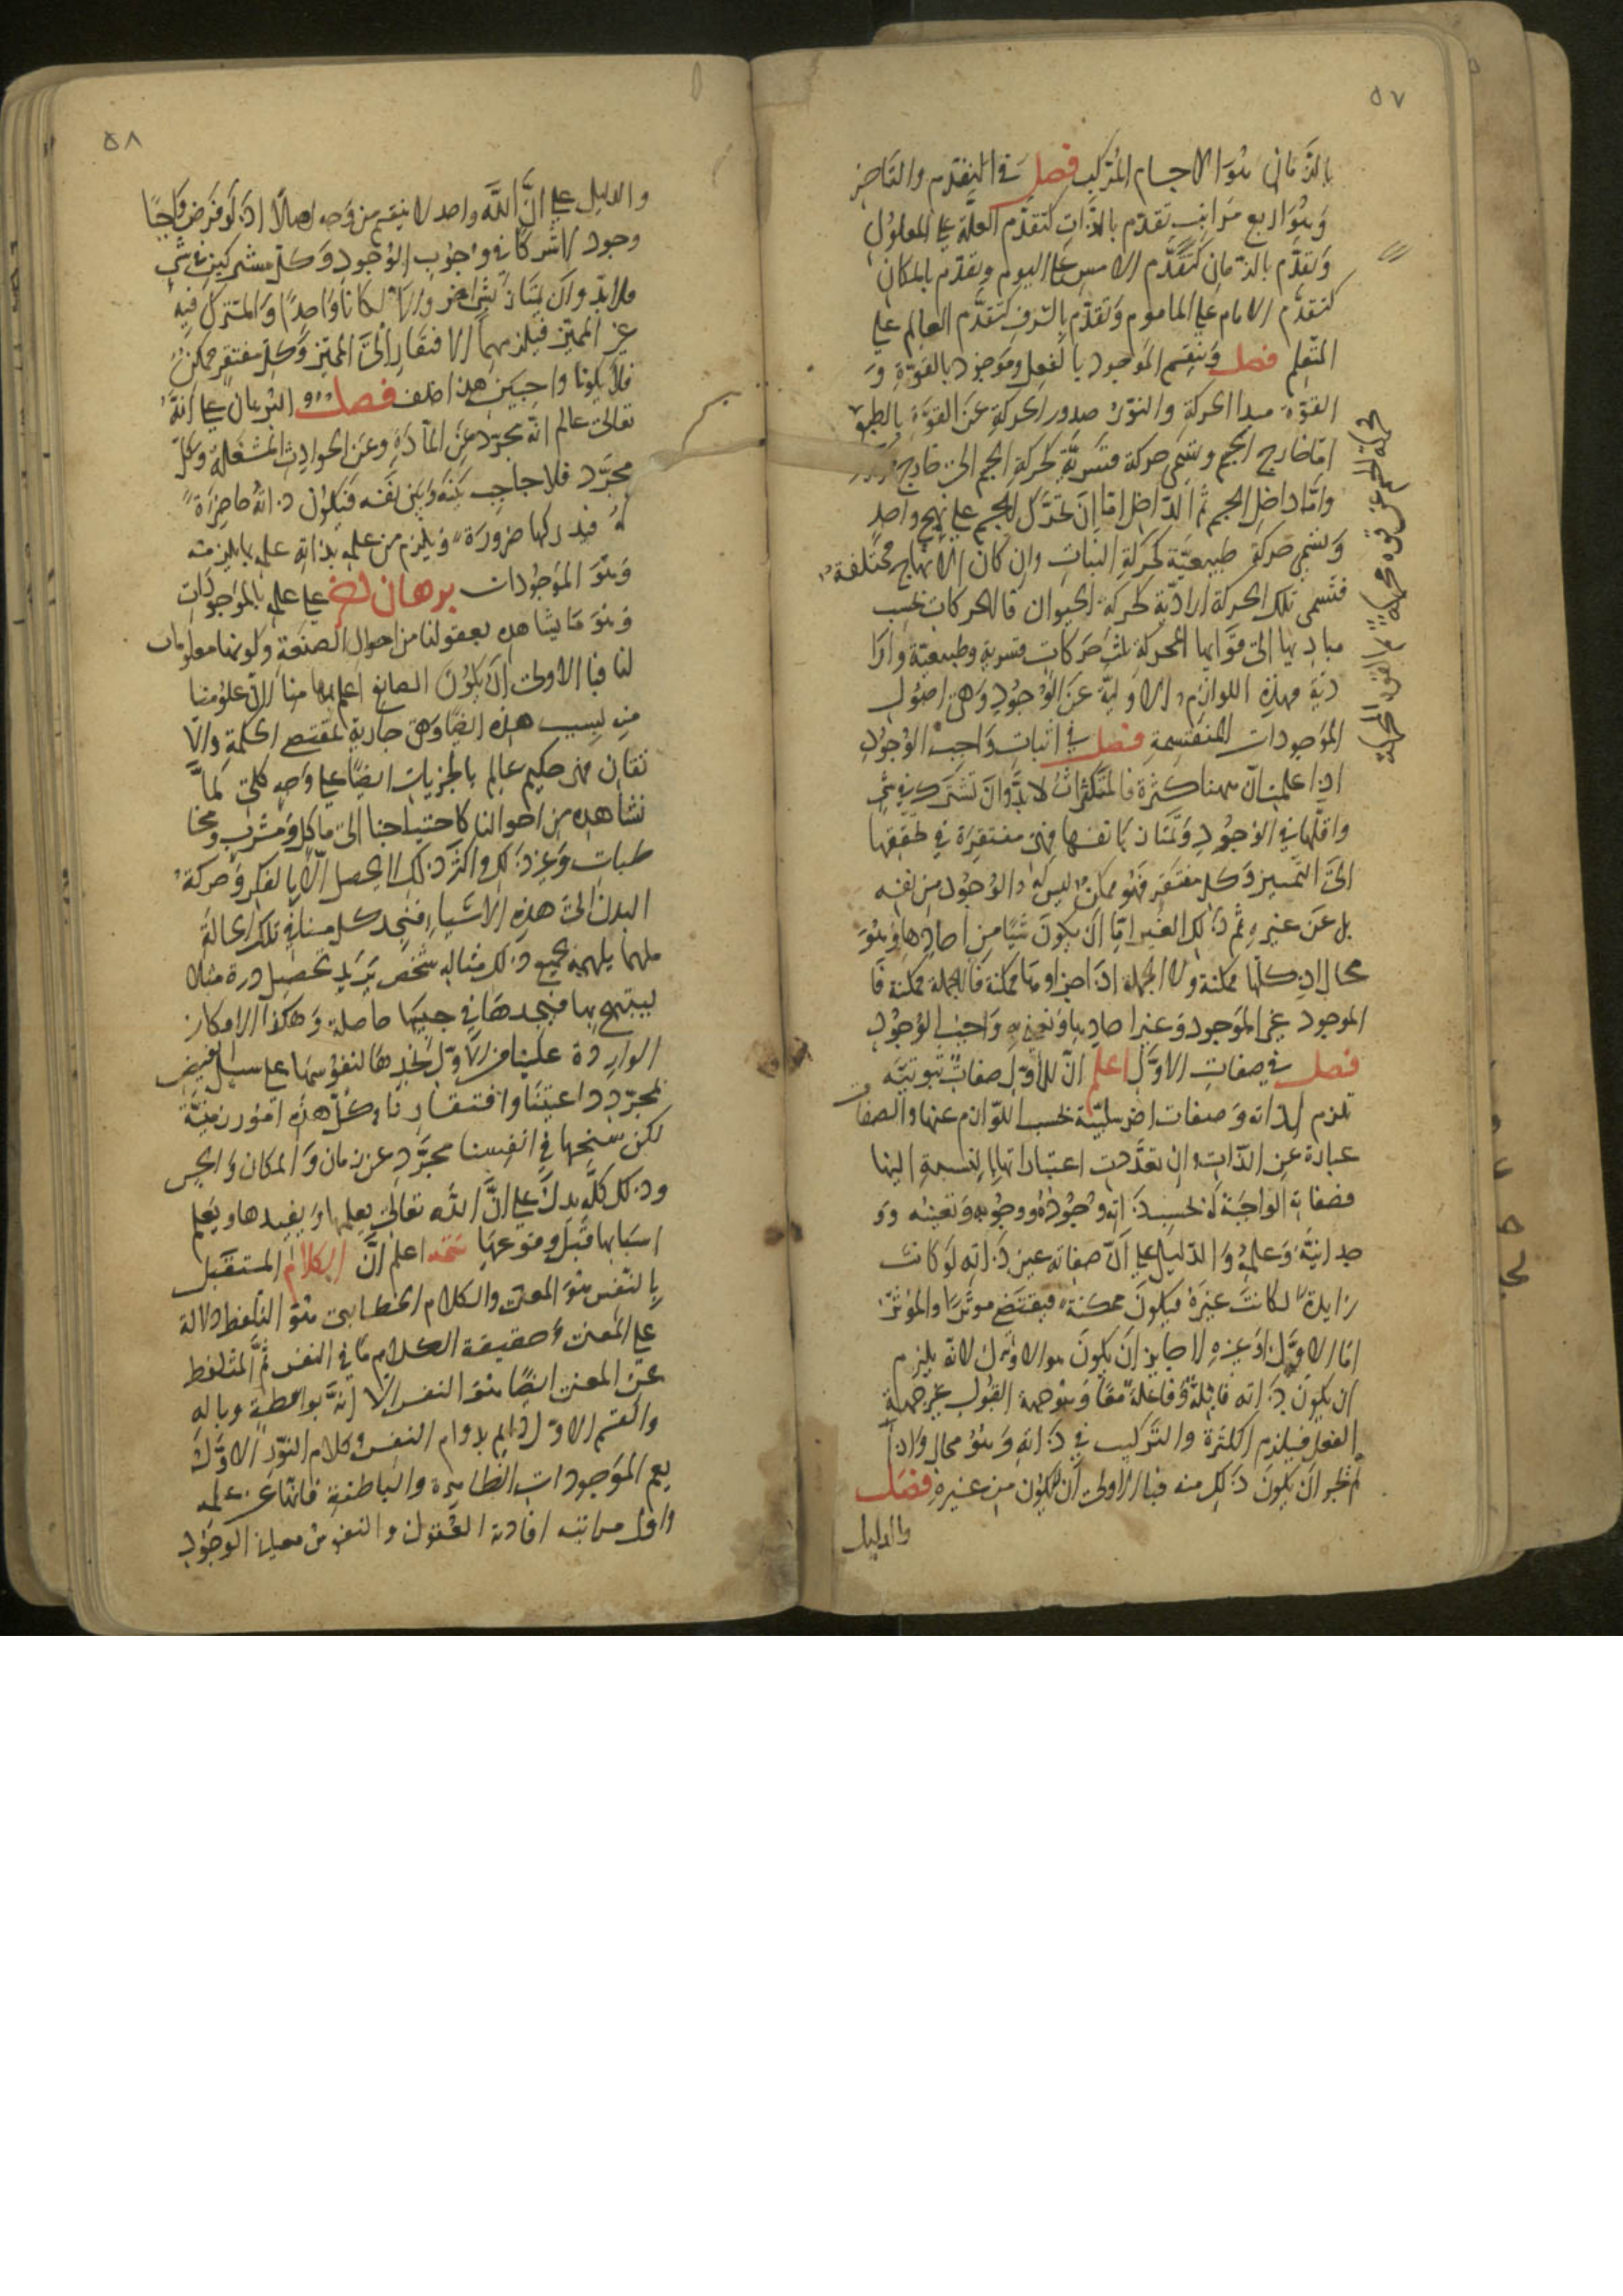 ٥٧
بالزمان هو الاجسام المركب فصل في التقدم والتاخر
وهو اربع مراتب تقدم بالذات كتقدم العلة على المعلول
وتقدم بالزمان كتقدم الامس على اليوم وتقدم بالمكان
كتقدم الامام على الماموم وتقدم بالشرف كتقدم العالم على
المتعلم فصل وينقسم الموجود بالفعل وموجود بالقوة و
القوة مبدا الحركة والنور صدور الحركة عن القوة بالطبع
اما خارج الجسم وتسمى حركة قسرية كحركة الحجر الى خارج
واما داخل الجسم ثم الداخل اما ان تحرك الجسم على نهج واحد
وتسمى حركة طبيعية كحركة النبات وان كان الانهاج مختلفة
فتسمى تلك الحركة ارادية كحركة الحيوان فالحركات بحسب
مباديها الى قوايها المحركة ثلث حركات قسرية وطبيعية وارا
دية فهذه اللوازم الاولية عن الوجود وهى اصول
الموجودات المنقسمة فصل في اثبات واجب الوجود
اذا علمت ان ههنا كثرة فالمتكثرات لابد وان تشترك في شى
واقلها في الوجود وتمتاز بانفسها فهى مفتقرة في تحققها
الى التمييز وكل مفتقر فهو ممكن ليس له الوجود من نفسه
بل عن غيره ثم ذلك الغير اما ان يكون شيا من احادها وهو
محال اذ كلها ممكنة ولا الجملة اذ اجزاوها ممكنة فالجملة ممكنة فا
الموجود غير الموجود وغير احادها ونعنى به واجب الوجود
فصل في صفات الاول اعلم ان للاول صفات ثبوتية
تلزم لذاته وصفات اخر سلبية بحسب اللوازم عنها والصفات
عبارة عن الذات وان تعددت اعتباراتها بالنسبة الينا
فصفاته الواجبة له بحسب ذاته وجوده ووجوبه وتعينه وو
حدانية وعلمه والدليل على ان صفاته عين ذاته لو كانت
زايدة لكانت غيره فيكون ممكنة فيقتضى موثرا والموثر
اما الاول او غيره لا جايز ان يكون هو الاول لانه يلزم
ان يكون ذاته قابلة وفاعلة معا وهو جهة القبول غير جهة
الفعل فيلزم الكثرة والتركيب في ذاته وهو محال واذا
لم يجز ان يكون ذلك منه فبالاولى ان لايكون من غيره فصل
والدليل
٥٨
والدليل على ان الله واحد لا ينقسم من وجه اصلا اذ لو فرض واجبا
وجود لاشتركا في وجوب الوجود وكل مشتركين في شى
فلابد وان يمتاز بشى اخر والا لكانا واحدا والمشترك فيه
غير المميز فيلزمهما الافتقار الى المميز وكل مفتقر ممكن
فلا يكونا واجبين هذا خلف فصل والبرهان على انه
تعالى عالم انه مجرد عن المادة وعن الحوادث المشغلة وكل
مجرد فلا حاجب بينه وبين نفسه فيكون ذاته حاضرة
له فيدركها ضرورة ويلزم من علمه بذاته علمه بما يلزمه
وهو الموجودات برهان اخر على علمه بالموجودات
وهو ما يشاهد بعقولنا من احوال الصنعة وكونها معلومات
لنا فبالاولى ان يكون الصانع اعلم بها منا لان علومنا
من بسبب هذه ايضا وهى جارية بمقتضى الحكمة والا
تقان فهى حكيم عالم بالجزيات ايضا على وجه كلى كما
نشاهده من احوالنا كاحتياجنا الى ماكل ومشرب ومخا
طبات وغير ذلك واكثر ذلك لايحصل الا بالفكر وحركة
البدن الى هذه الاشياء فنجد كل منا في تلك الحالة
ملهما يلهمه بجميع ذلك مثاله شخص يريد تحصيل درة مثلا
ليبتهج بها فيجدها في جيبها حاصلة وهكذا الافكار
الواردة علينا من الاول نجدها لنفوسها على سبيل فيض
لمجرد داعيتنا وافتقارنا وكل هذه امور زمنية
لكن سنحها في انفسنا مجرد عن زمان والمكان والحس
وذلك كله يدل على ان الله تعالى يعلمها ويفيدها ويعلم
اسبابها قبل وقوعها اعلم ان الكلام المستقبل
بالنفس هو المعنى والكلام الخطابى هو التلفظ دلالة
على المعنى وحقيقة الكلام ما في النفس ثم المتلفظ
عن المعنى ايضا هو النفس الا انه بواسطة وباله
والقسم الاول دايم بدوام النفس وكلام النور الاول
يعم الموجودات الظاهرة والباطنة فانها عن علمه
واول مراتبه افادة العقول والنفوس معيار الوجود